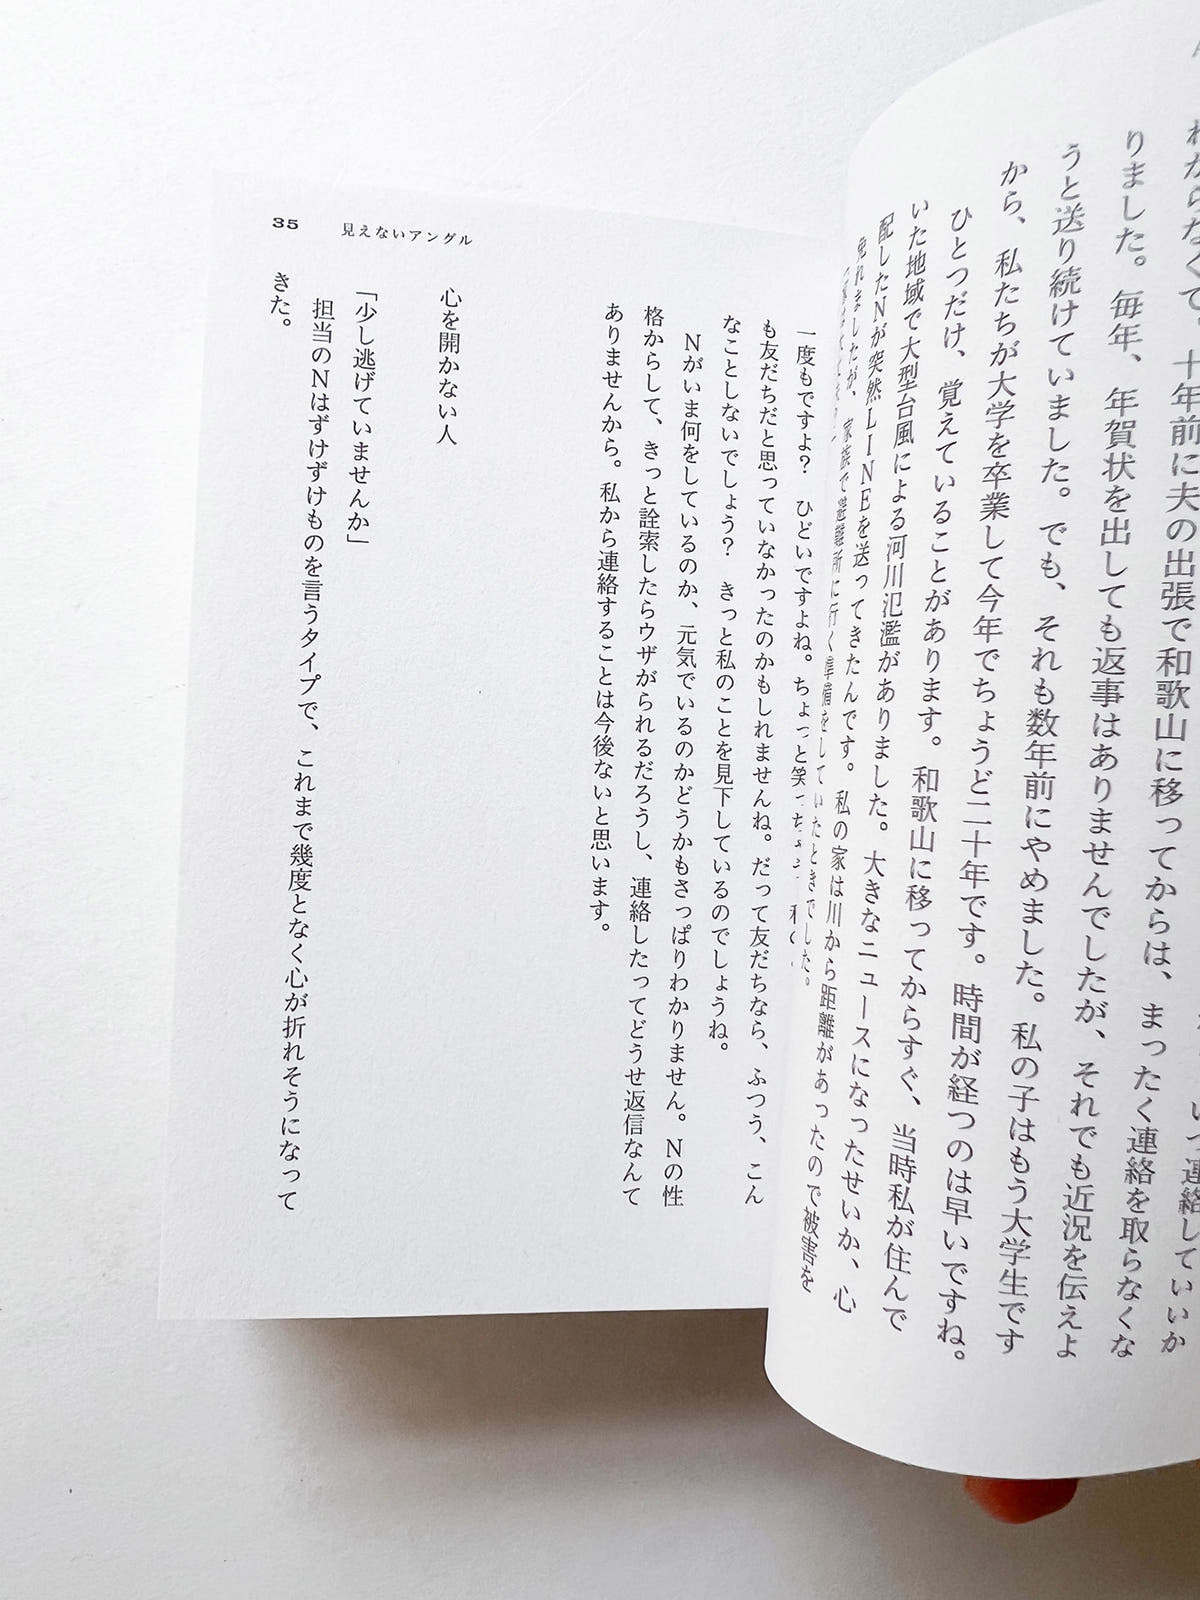 わからなくて。十年前に夫の出張で和歌山に移ってからは、まったく連絡を取らなくな
りました。毎年、年賀状を出しても返事はありませんでしたが、それでも近況を伝えよ
うと送り続けていました。でも、それも数年前にやめました。私の子はもう大学生です
から、私たちが大学を卒業して今年でちょうど二十年です。時間が経つのは早いですね。
ひとつだけ、覚えていることがあります。和歌山に移ってからすぐ、当時私が住んで
いた地域で大型台風による河川氾濫がありました。大きなニュースになったせいか、心
配したNが突然LINEを送ってきたんです。私の家は川から距離があったので被害を
免れましたが、家族で避難所に行く準備をしていたときでした。
一度もですよ? ひどいですよね。ちょっと笑っちゃう
も友だちだと思っていなかったのかもしれませんね。だって友だちなら、ふつう、こん
なことしないでしょう? きっと私のことを見下しているのでしょうね。
Nがいま何をしているのか、元気でいるのかどうかもさっぱりわかりません。Nの性
格からして、きっと詮索したらウザがられるだろうし、連絡したってどうせ返信なんて
ありませんから。私から連絡することは今後ないと思います。
心を開かない人
「少し逃げていませんか」
担当のNはずけずけものを言うタイプで、これまで幾度となく心が折れそうになって
きた。
35 見えないアングル